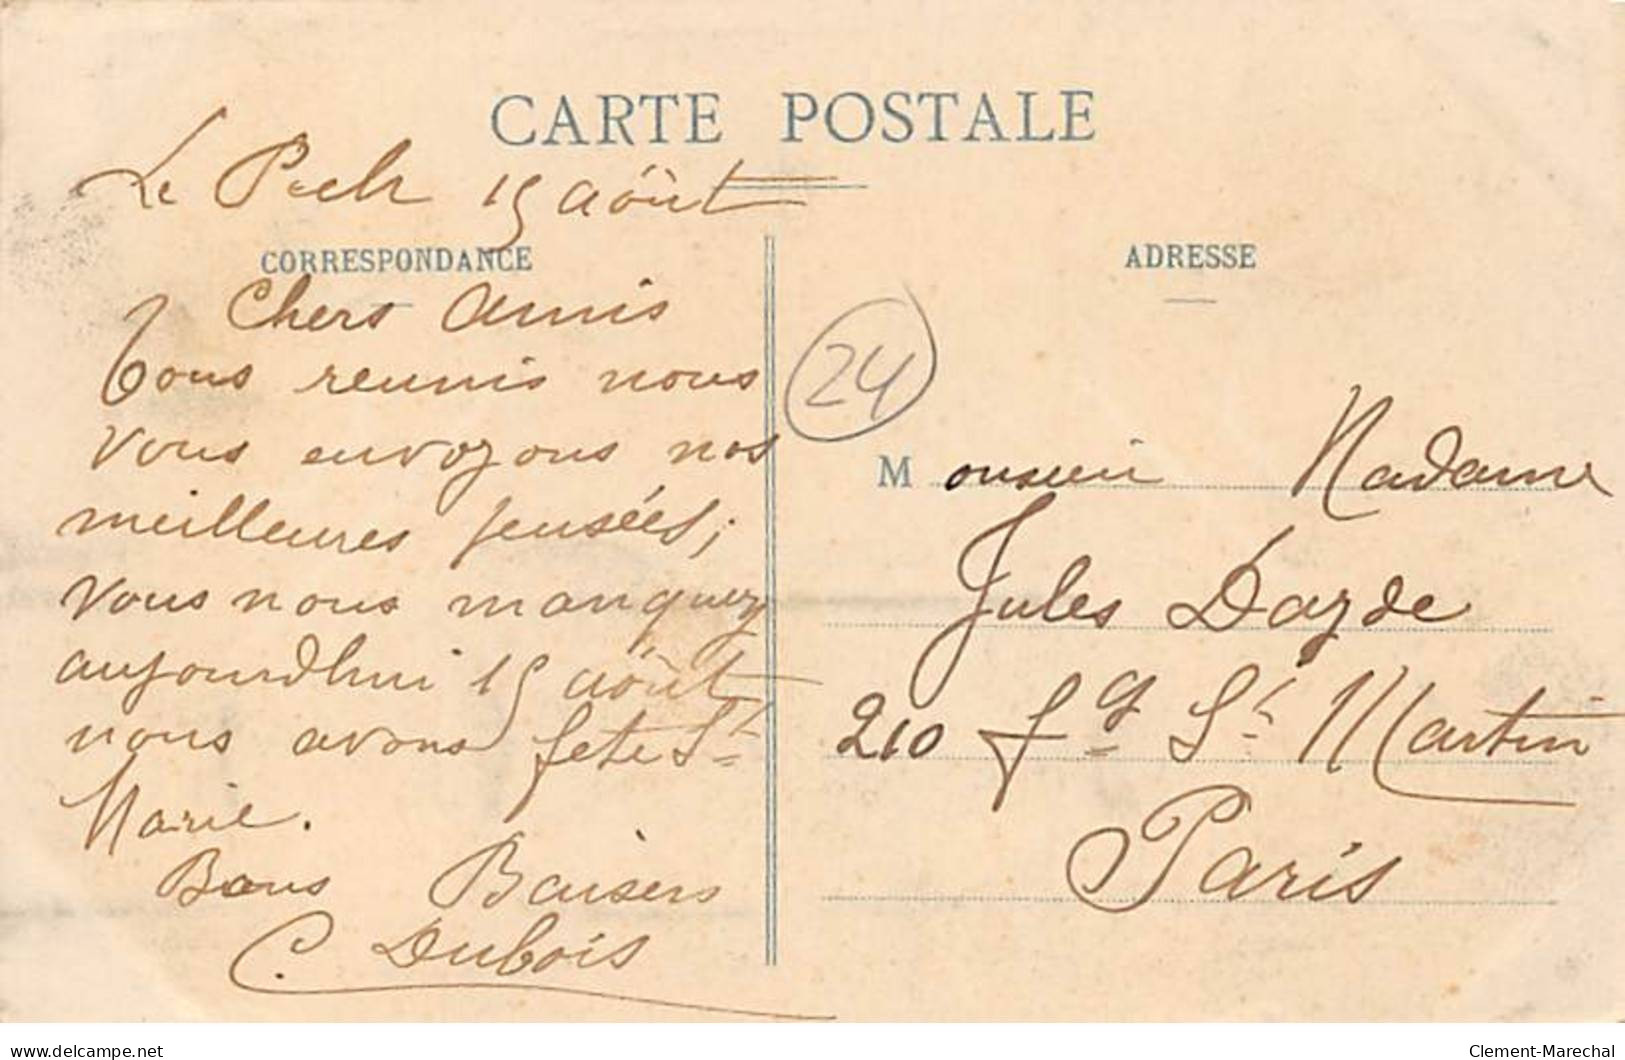 CARTE POSTALE
Le Pech 15 août
CORRESPONDANCE
Chers Amis
Tous reunis nous
vous envoyons nos
meilleures pensées,
Vous nous manquez
aujourdhui 15 août
nous avons fete St
Marie.
Bons Baisers
C. Dubois
ADRESSE
24
Monsieur Madame
Jules Dazde
210 fg St Martin
Paris
delcampe.net
Clement-Marechal